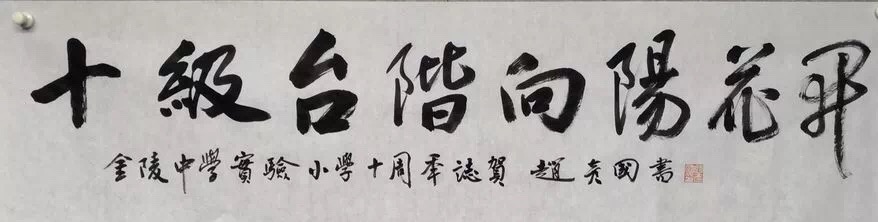 十級台階向陽花開
金陵中學實驗小學十周年誌賀 趙 國書